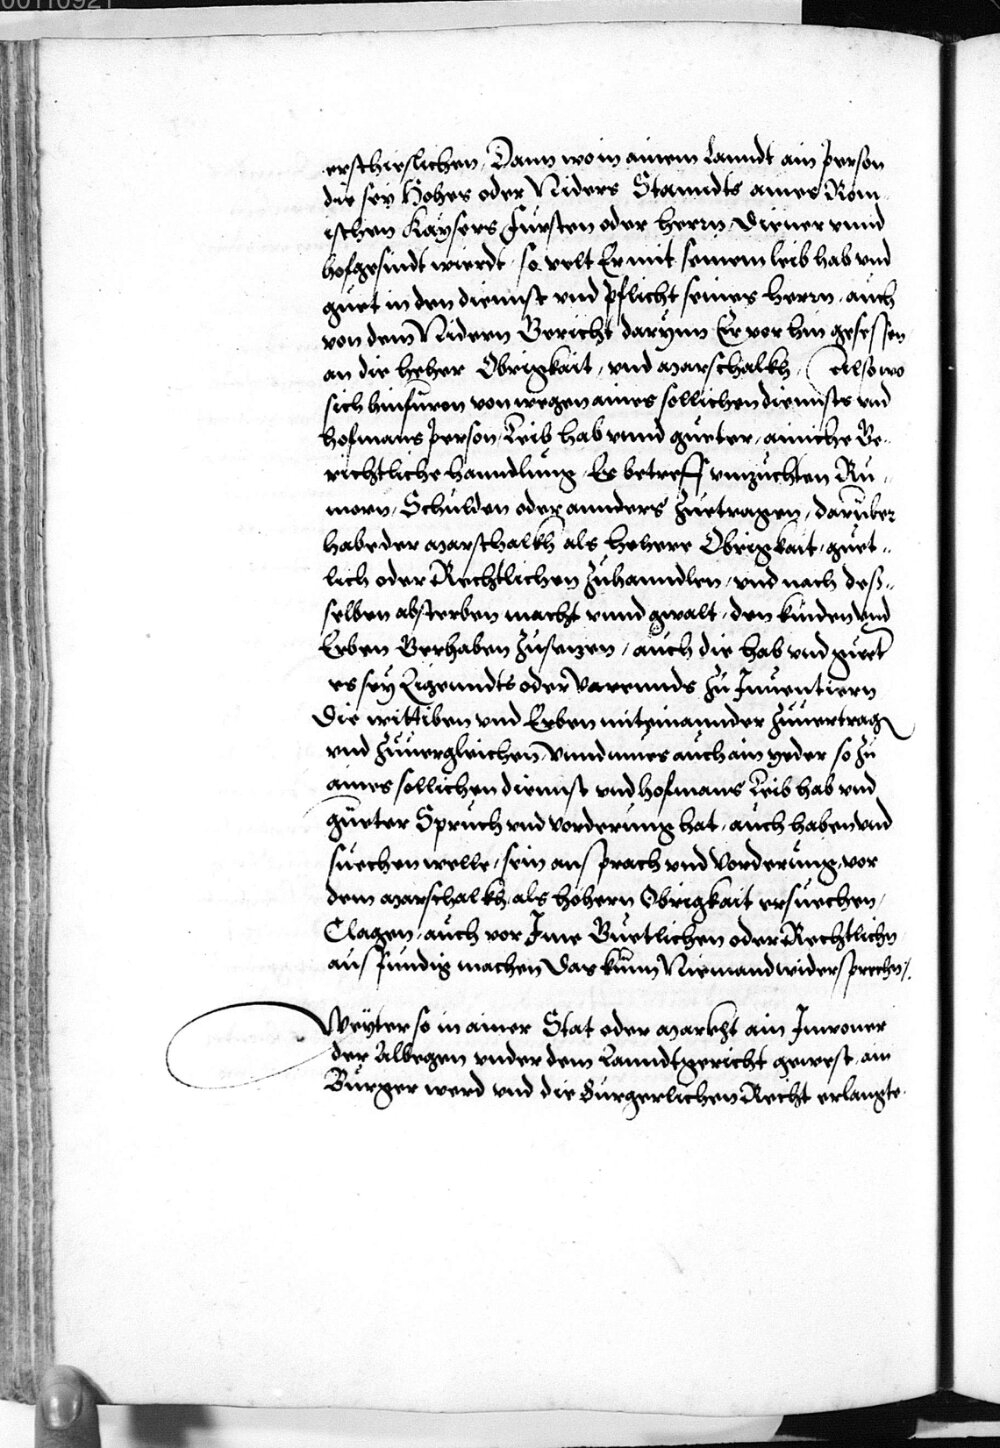 00110921
erschieslichen, Dann wo in ainem Lanndt ain person
die sey Hohes oder Niders Standts aines Röm-
ischen Kaysers, Fürsten oder herrn, Diener vnnd
hofgesindt wierdt, so velt Er mit seinem leib hab vnd
guet in den diennst vnd pflicht seines herrn, auch
von dem Nidern Gericht darynn Er vor hin gesessen
an die heher Obrigkait, vnd marschalkh, Also wo
sich hinfüron von wegen aines sollichen diennsts vnd
hofmans person, Leib hab vnnd gueter, ainiche Ge-
richtliche hanndlung, Es betreff vnnzuchten Ru-
morn, Schulden oder annders Zuetragen, darüber
habe der marschalkh als hehere Obrigkait, guet-
lich oder Rechtlichen Zuhanndlen, vnd nach des-
selben absterben macht vnnd gwalt, den kinden vnd
Erben Gerhaben Zusetzen, auch die hab vnd guet
es sey Ligenndts oder Varennds Zu Inuentiern
Die wittiben vnd Erben miteinannder Zuuertrag
vnd Zuuergleichen, Vnnd mues auch ain yeder so Zu
aines sollichen diennst vnd hofmans Leib hab vnd
güeter Spruch vnd vorderung hat, auch haben vnd
suechen welle, sein ansprach vnd Vorderung, vor
dem marschalkh, als höhern Obrigkait ersuechen,
Clagen, auch vor Ime Guetlichen oder Rechtlichn
ausfündig machen Das kunn Niemand widersprechn/.
Weyter so in ainer Stat oder markht ain Inwoner
der Albegen vnder dem Lanndtgericht gewest, ain
Burger werd vnd die Burgerlichen Recht erlangte